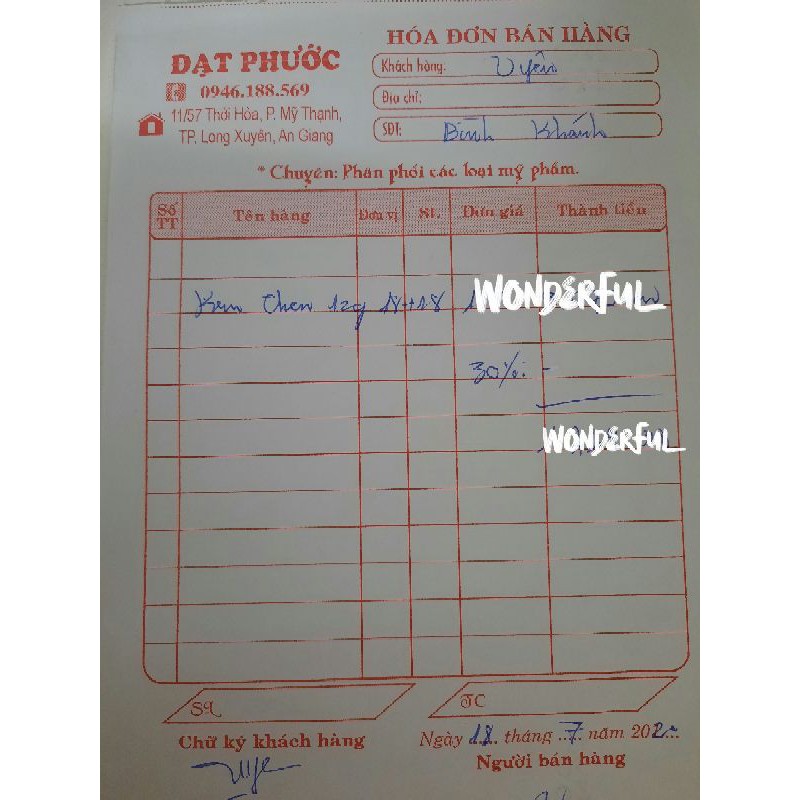 HÓA ĐƠN BÁN HÀNG
ĐẠT PHƯỚC
0946.188.569
11/57 Thới Hòa, P. Mỹ Thạnh,
TP. Long Xuyên, An Giang
Khách hàng: Uyên
Địa chỉ:
SĐT: Bình Khánh
* Chuyên: Phân phối các loại mỹ phẩm.
Số TT Tên hàng Đơn vị SL Đơn giá Thành tiền
Kem Chen 12g 18+18 WONDERFUL
30%: -
WONDERFUL
SL TC
Ngày 18 tháng 7 năm 202
Chữ ký khách hàng
Người bán hàng